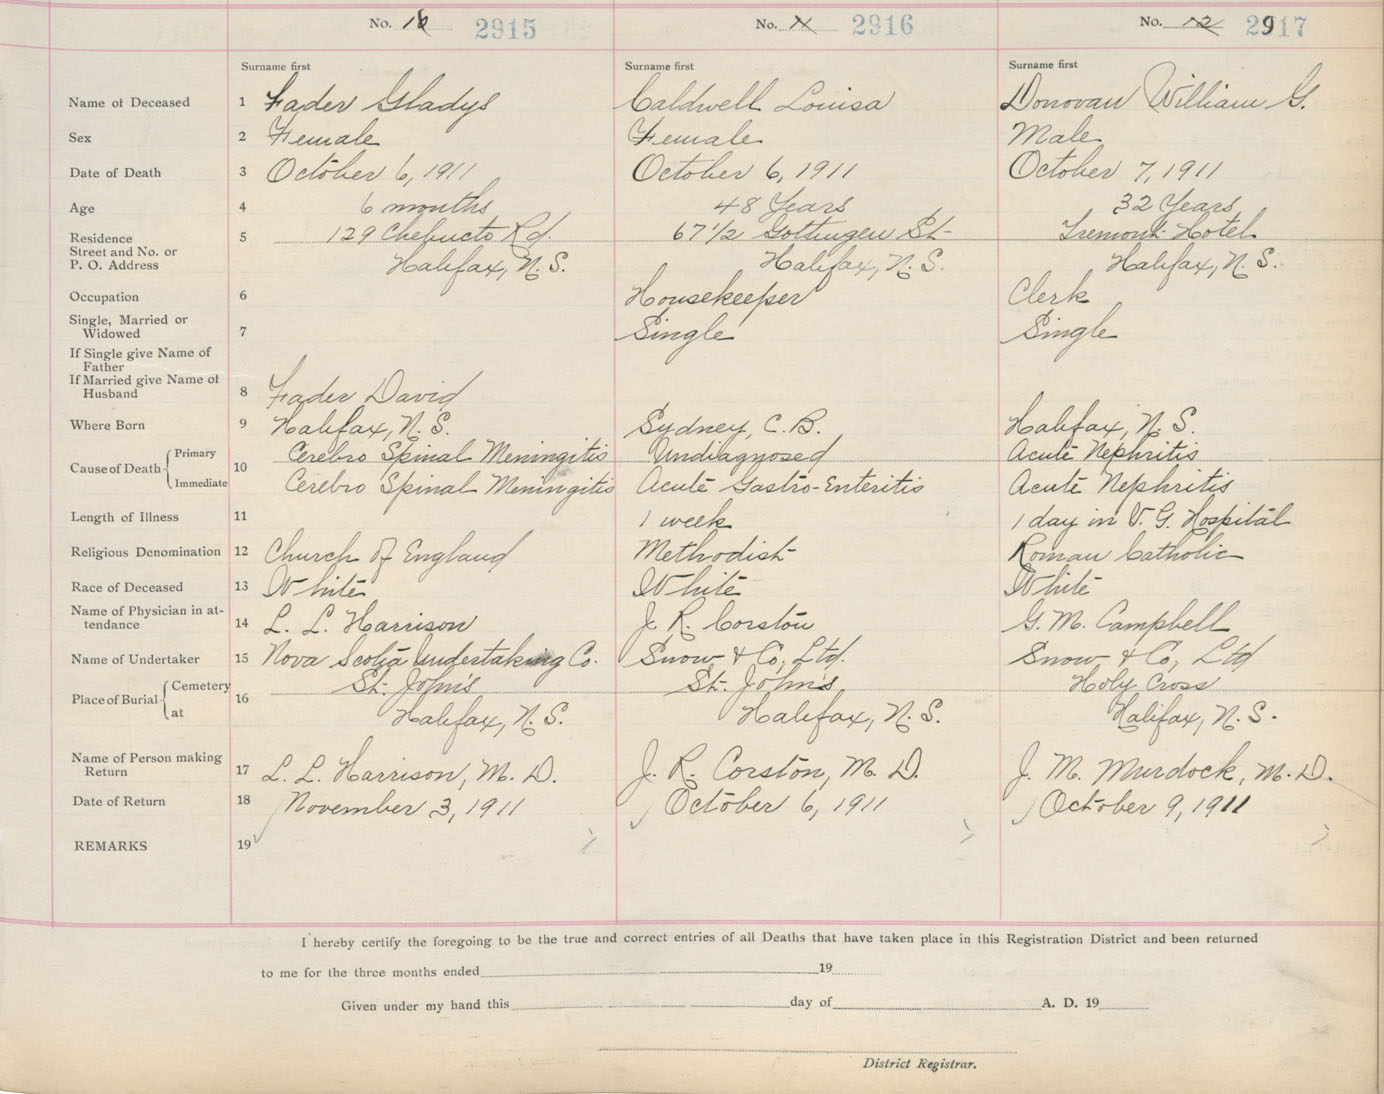 No. 10 2915 No. 11 2916 No. 12 2917
Surname first Surname first Surname first
Name of Deceased 1 Fader Gladys Caldwell Louisa Donovan William G.
Sex 2 Female Female Male
Date of Death 3 October 6, 1911 October 6, 1911 October 7, 1911
Age 4 6 months 48 Years 32 Years
Residence 5 129 Chebucto Rd. 67 1/2 Gottingen St. Tremont Hotel
Street and No. or
P. O. Address Halifax, N. S. Halifax, N. S. Halifax, N. S.
Occupation 6 Housekeeper Clerk
Single, Married or
Widowed 7 Single Single
If Single give Name of
Father
If Married give Name of
Husband 8 Fader David
Where Born 9 Halifax, N. S. Sydney, C. B. Halifax, N. S.
Cause of Death 10 Primary Cerebro Spinal Meningitis Undiagnosed Acute Nephritis
Immediate Cerebro Spinal Meningitis Acute Gastro-Enteritis Acute Nephritis
Length of Illness 11 1 week 1 day in V. G. Hospital
Religious Denomination 12 Church of England Methodist Roman Catholic
Race of Deceased 13 White White White
Name of Physician in at-
tendance 14 L. L. Harrison J. R. Corston G. M. Campbell
Name of Undertaker 15 Nova Scotia Undertaking Co. Snow & Co, Ltd. Snow & Co, Ltd
Place of Burial 16 Cemetery St. John's St. John's Holy Cross
at Halifax, N. S. Halifax, N. S. Halifax, N. S.
Name of Person making
Return 17 L. L. Harrison, M. D. J. R. Corston, M. D. J. M. Murdock, M. D.
Date of Return 18 November 3, 1911 October 6, 1911 October 9, 1911
REMARKS 19
I hereby certify the foregoing to be the true and correct entries of all Deaths that have taken place in this Registration District and been returned
to me for the three months ended 19
Given under my hand this day of A. D. 19
District Registrar.